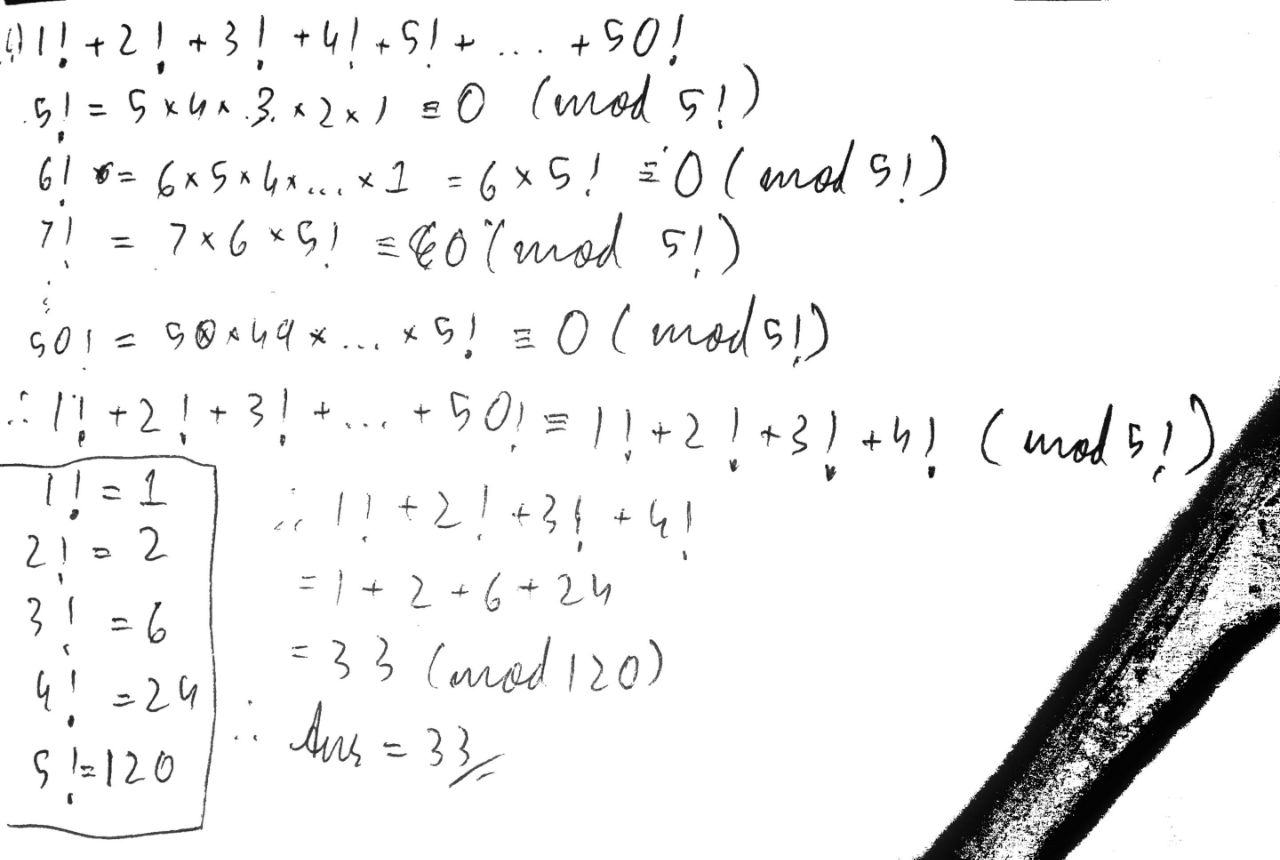 1) 1! + 2! + 3! + 4! + 5! + ... + 50!
5! = 5 × 4 × 3 × 2 × 1 ≡ 0 (mod 5!)
6! = 6 × 5 × 4 × ... × 1 = 6 × 5! ≡ 0 (mod 5!)
7! = 7 × 6 × 5! ≡ 0 (mod 5!)
⋮
50! = 50 × 49 × ... × 5! ≡ 0 (mod 5!)
∴ 1! + 2! + 3! + ... + 50! ≡ 1! + 2! + 3! + 4! (mod 5!)
1! = 1
2! = 2
3! = 6
4! = 24
5! = 120
∴ 1! + 2! + 3! + 4!
= 1 + 2 + 6 + 24
= 33 (mod 120)
∴ Ans = 33